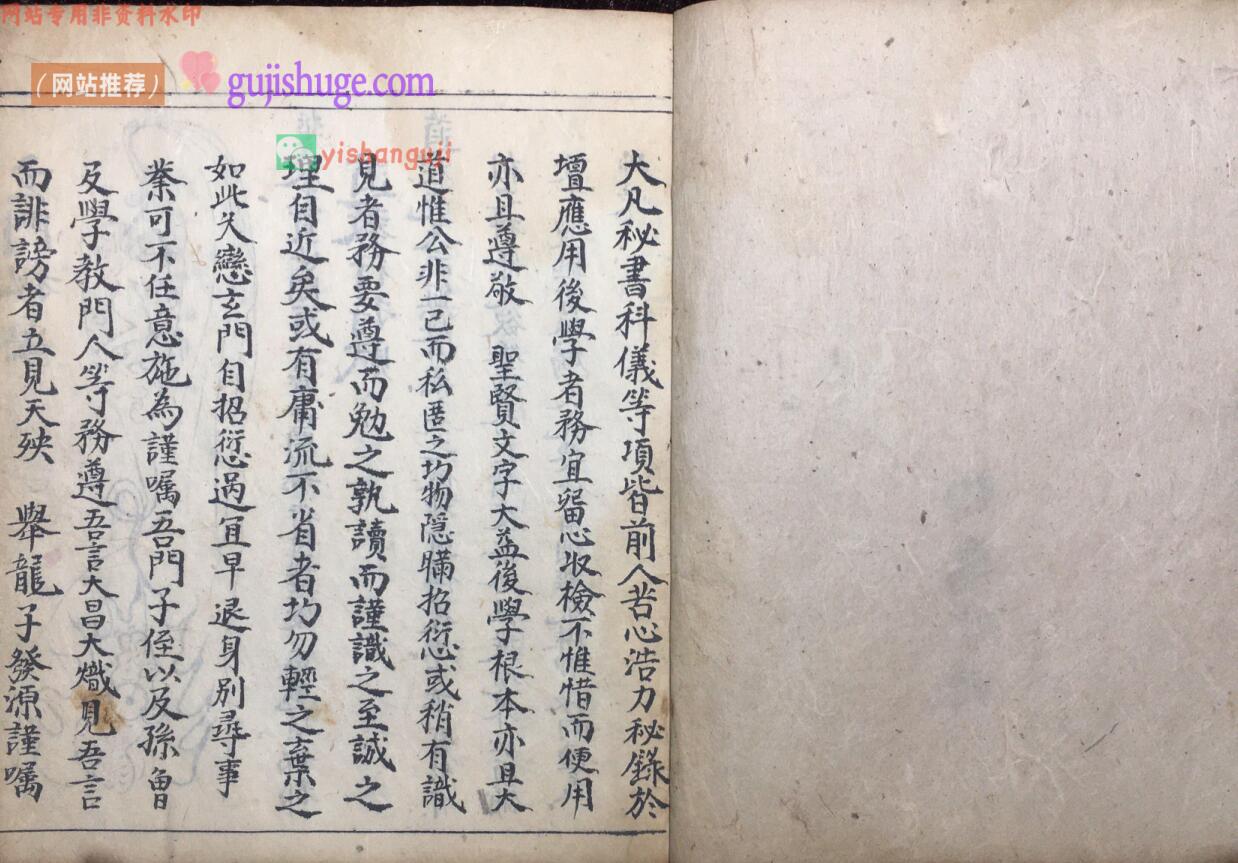 网站专用非资料水印
（网站推荐） gujishuge.com
yishanguji
大凡秘書科儀等項皆前人苦心浩力秘錄於
壇應用後學者務宜留心収檢不惟惜而便用
亦且遵敬 聖賢文字大益後學根本亦且大
道惟公非一己而私匿之均物隱瞞招愆或稍有識
見者務要遵而勉之孰讀而謹識之至誠之
理自近矣或有庸流不省者均勿輕之棄之
如此久戀玄門自招愆過宜早退身別尋事
業可不任意施為謹嘱吾門子侄以及孫曾
及學教門人等務遵吾言大昌大熾見吾言
而誹謗者立見天殃 舉龍子發源謹嘱